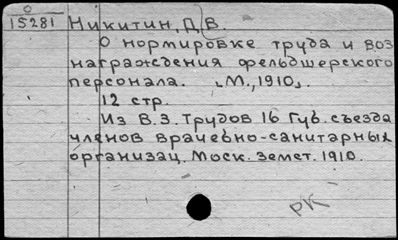 О
15281 Никитин, Д.В.
О нормировке труда и воз
награждения фельдшерского
персонала. [М., 1910].
12 стр.
Из В.З. Трудов 16 Губ. съезда
членов врачебно-санитарных
организац. Моск. земст. 1910.
РК